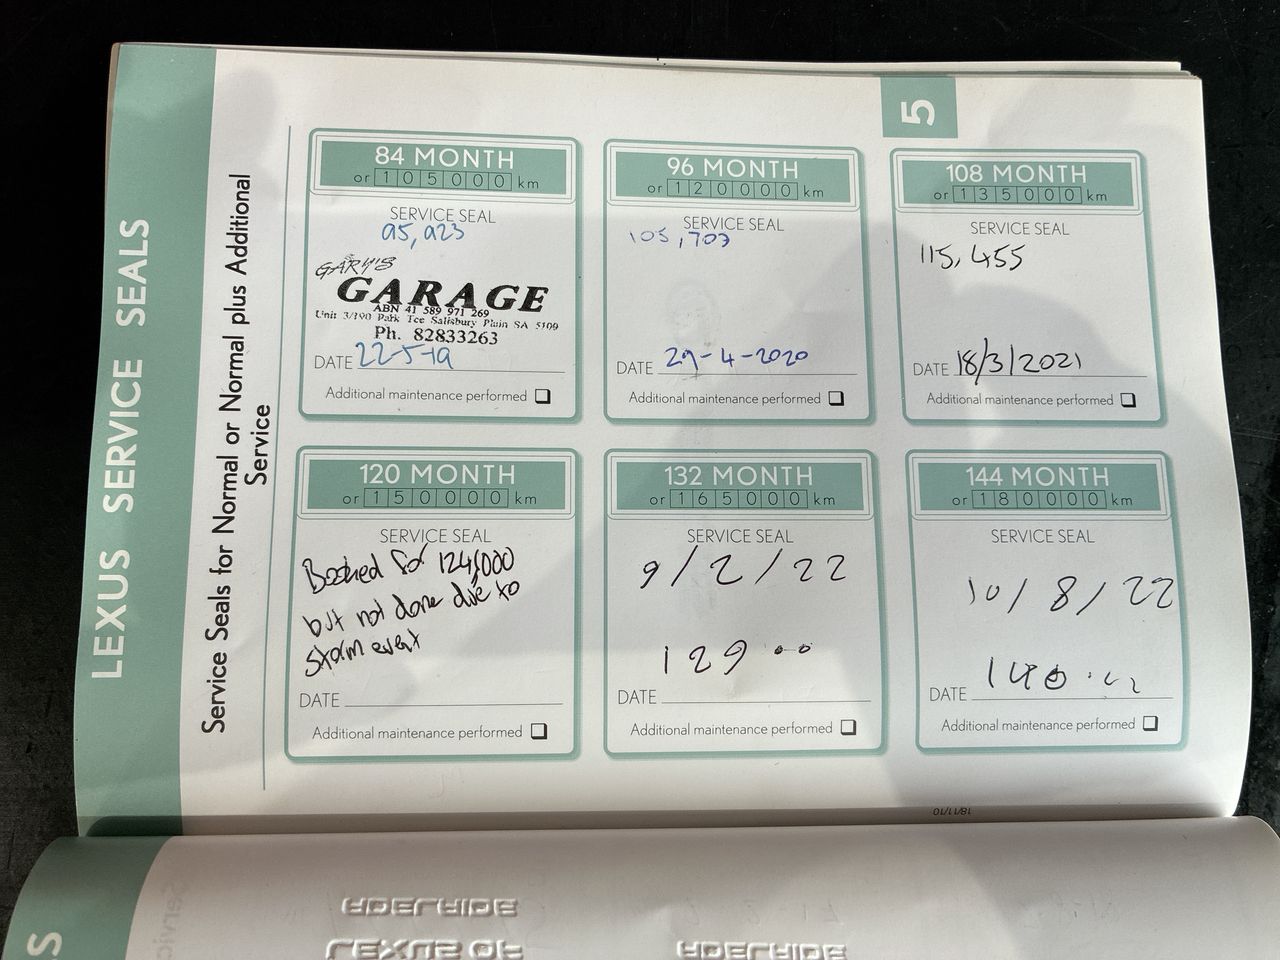 LEXUS SERVICE SEALS
Service Seals for Normal or Normal plus Additional
Service
5
84 MONTH
or 105000 km
SERVICE SEAL
95,923
GARY'S
GARAGE
ABN 41 589 971 269
Unit 3/190 Park Tce Salisbury Plain SA 5109
Ph. 82833263
DATE 22-5-19
Additional maintenance performed
96 MONTH
or 120000 km
SERVICE SEAL
105,703
DATE 29-4-2020
Additional maintenance performed
108 MONTH
or 135000 km
SERVICE SEAL
115,455
DATE 18/3/2021
Additional maintenance performed
120 MONTH
or 150000 km
SERVICE SEAL
Booked for 124,000
but not done due to
storm event
DATE
Additional maintenance performed
132 MONTH
or 165000 km
SERVICE SEAL
9/2/22
129
DATE
Additional maintenance performed
144 MONTH
or 180000 km
SERVICE SEAL
10/8/22
DATE 140
Additional maintenance performed
18/11/10
S
ADELAIDE
LEXUS OF
ADELAIDE